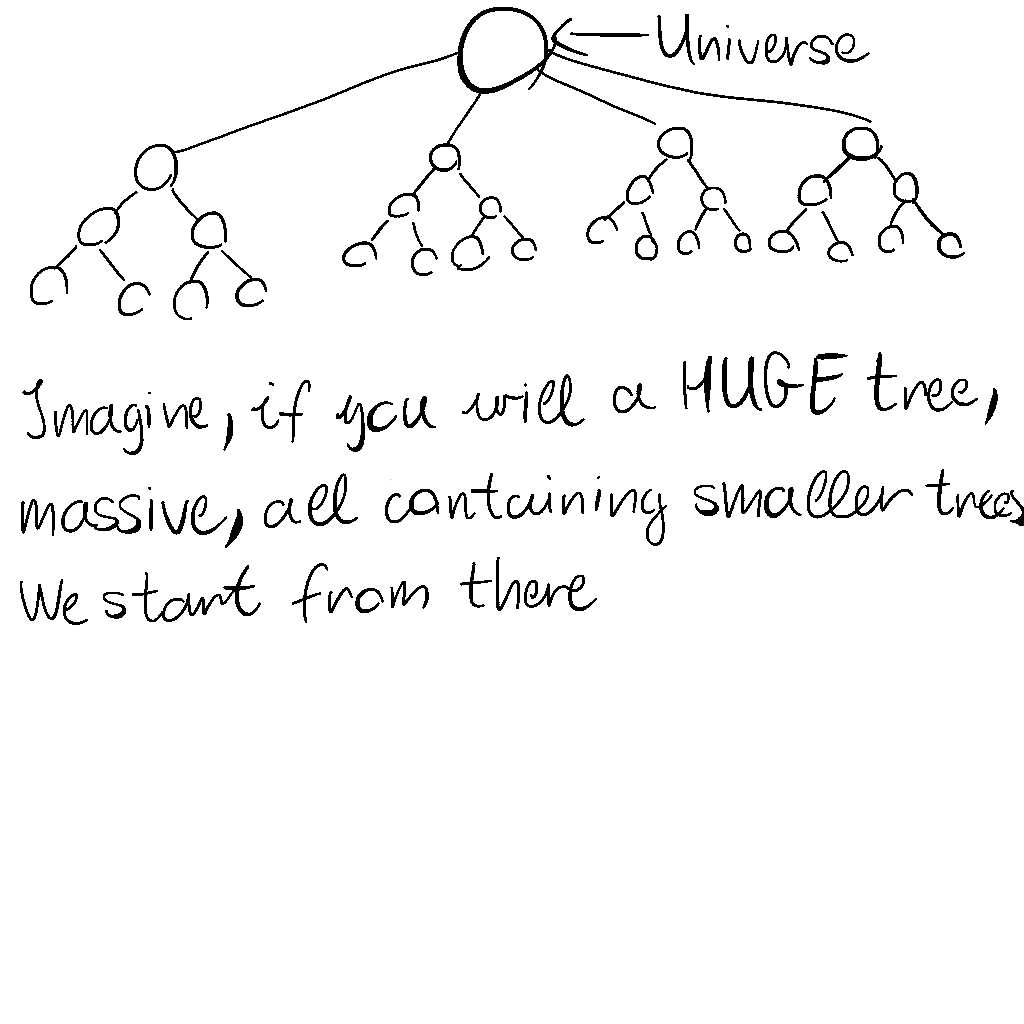 Universe
Imagine, if you will a HUGE tree,
massive, all containing smaller trees
We start from there